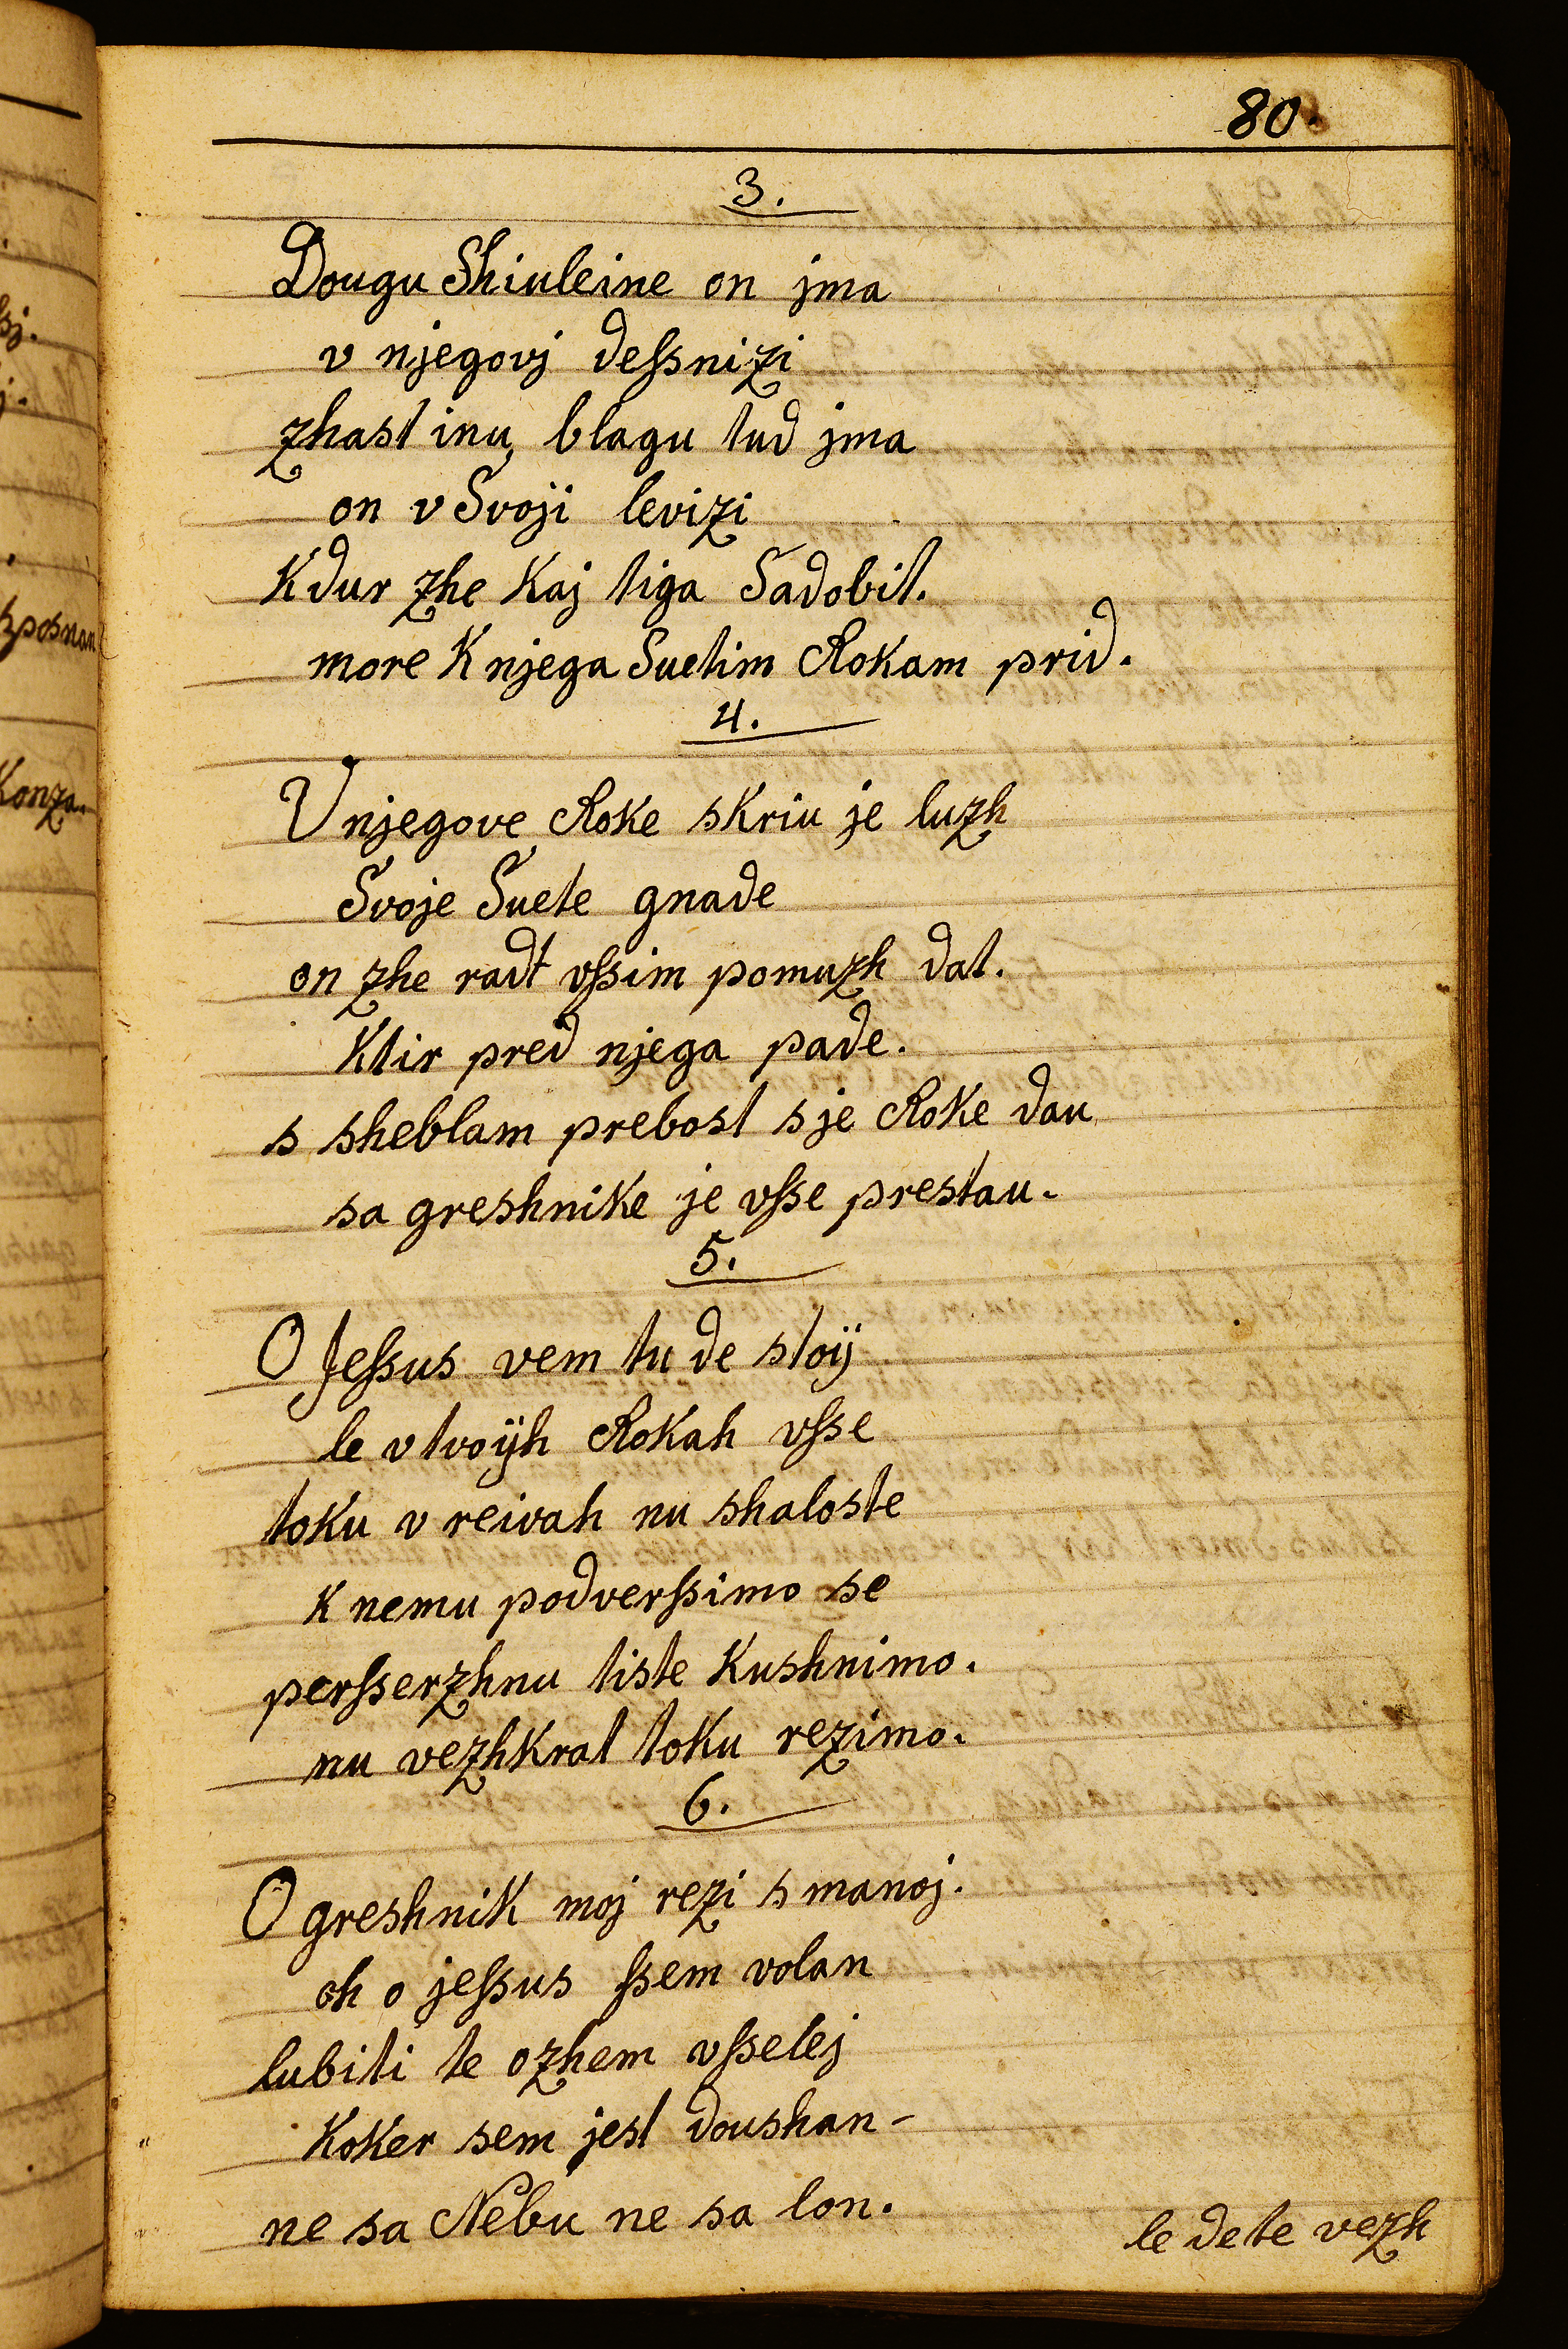 80.
3.
Dougu Shiuleine on jma
v njegovj deſsnizi
zhast inu blagu tud jma
on v Svoji levizi
Kdur zhe Kaj tiga Sadobit.
more K njega Suetim Rokam prid.
4.
V njegove Roke skriu je luzh
Svoje Suete gnade
on zhe radt vſsim pomuzh dat.
Ktir pred njega pade.
s sheblam prebost s je Roke dau
sa greshnike je vſse prestau.
5.
O Jeſsus vem tu de stoij
le v tvoijh Rokah vſse
toku v reivah nu shaloste
K nemu podverſsimo se
perſserzhnu tiste Kushnimo.
nu vezhkrat toku rezimo.
6.
O greshnik moj rezi s manoj.
oh o jeſsus ſsem volan
lubiti te ozhem vſselej
Koker sem jest doushan-
ne sa Nebu ne sa lon.
le de te vezh
ſsj.
j.
sposnan
Konza.